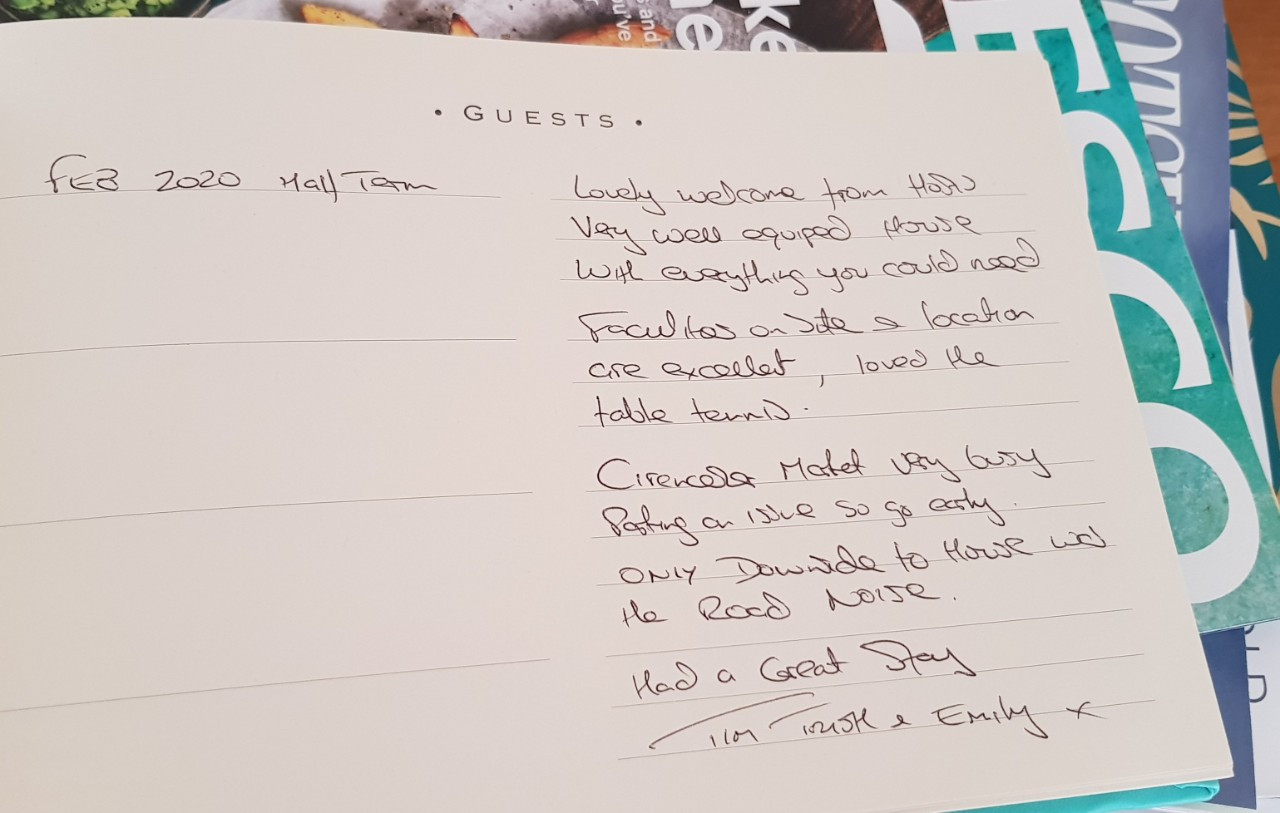 s and
u've
ke
ne
• GUESTS •
FEB 2020 Half Term
Lovely welcome from Hosts
Very well equiped House
With everything you could need
Facilites on site & location
are excellet, loved the
table tennis.
Cirencester Market very busy
Parking an issue so go early.
ONLY Downside to House was
the Road Noise.
Had a Great Stay
Tim & Emily x